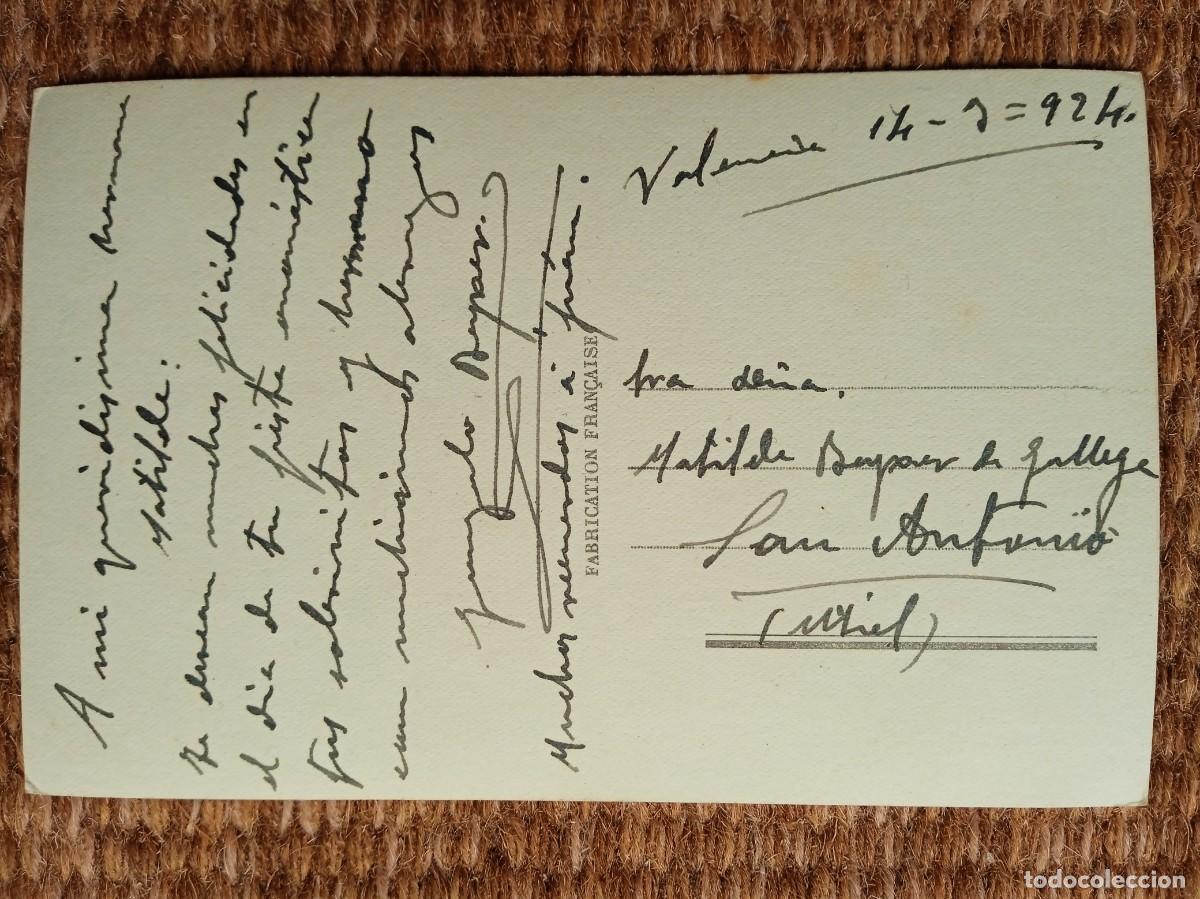 A mi queridisima hermana
Matilde:
Te desean muchas felicidades en
el dia de tu fiesta onomástica
tus sobrinitos y hermano
con muchisimos abrazos
Muchos recuerdos á
FABRICATION FRANÇAISE
Valencia 14-3=924.
Sra doña.
Matilde de Gallego
San Antonio
(Utiel)
todocoleccion